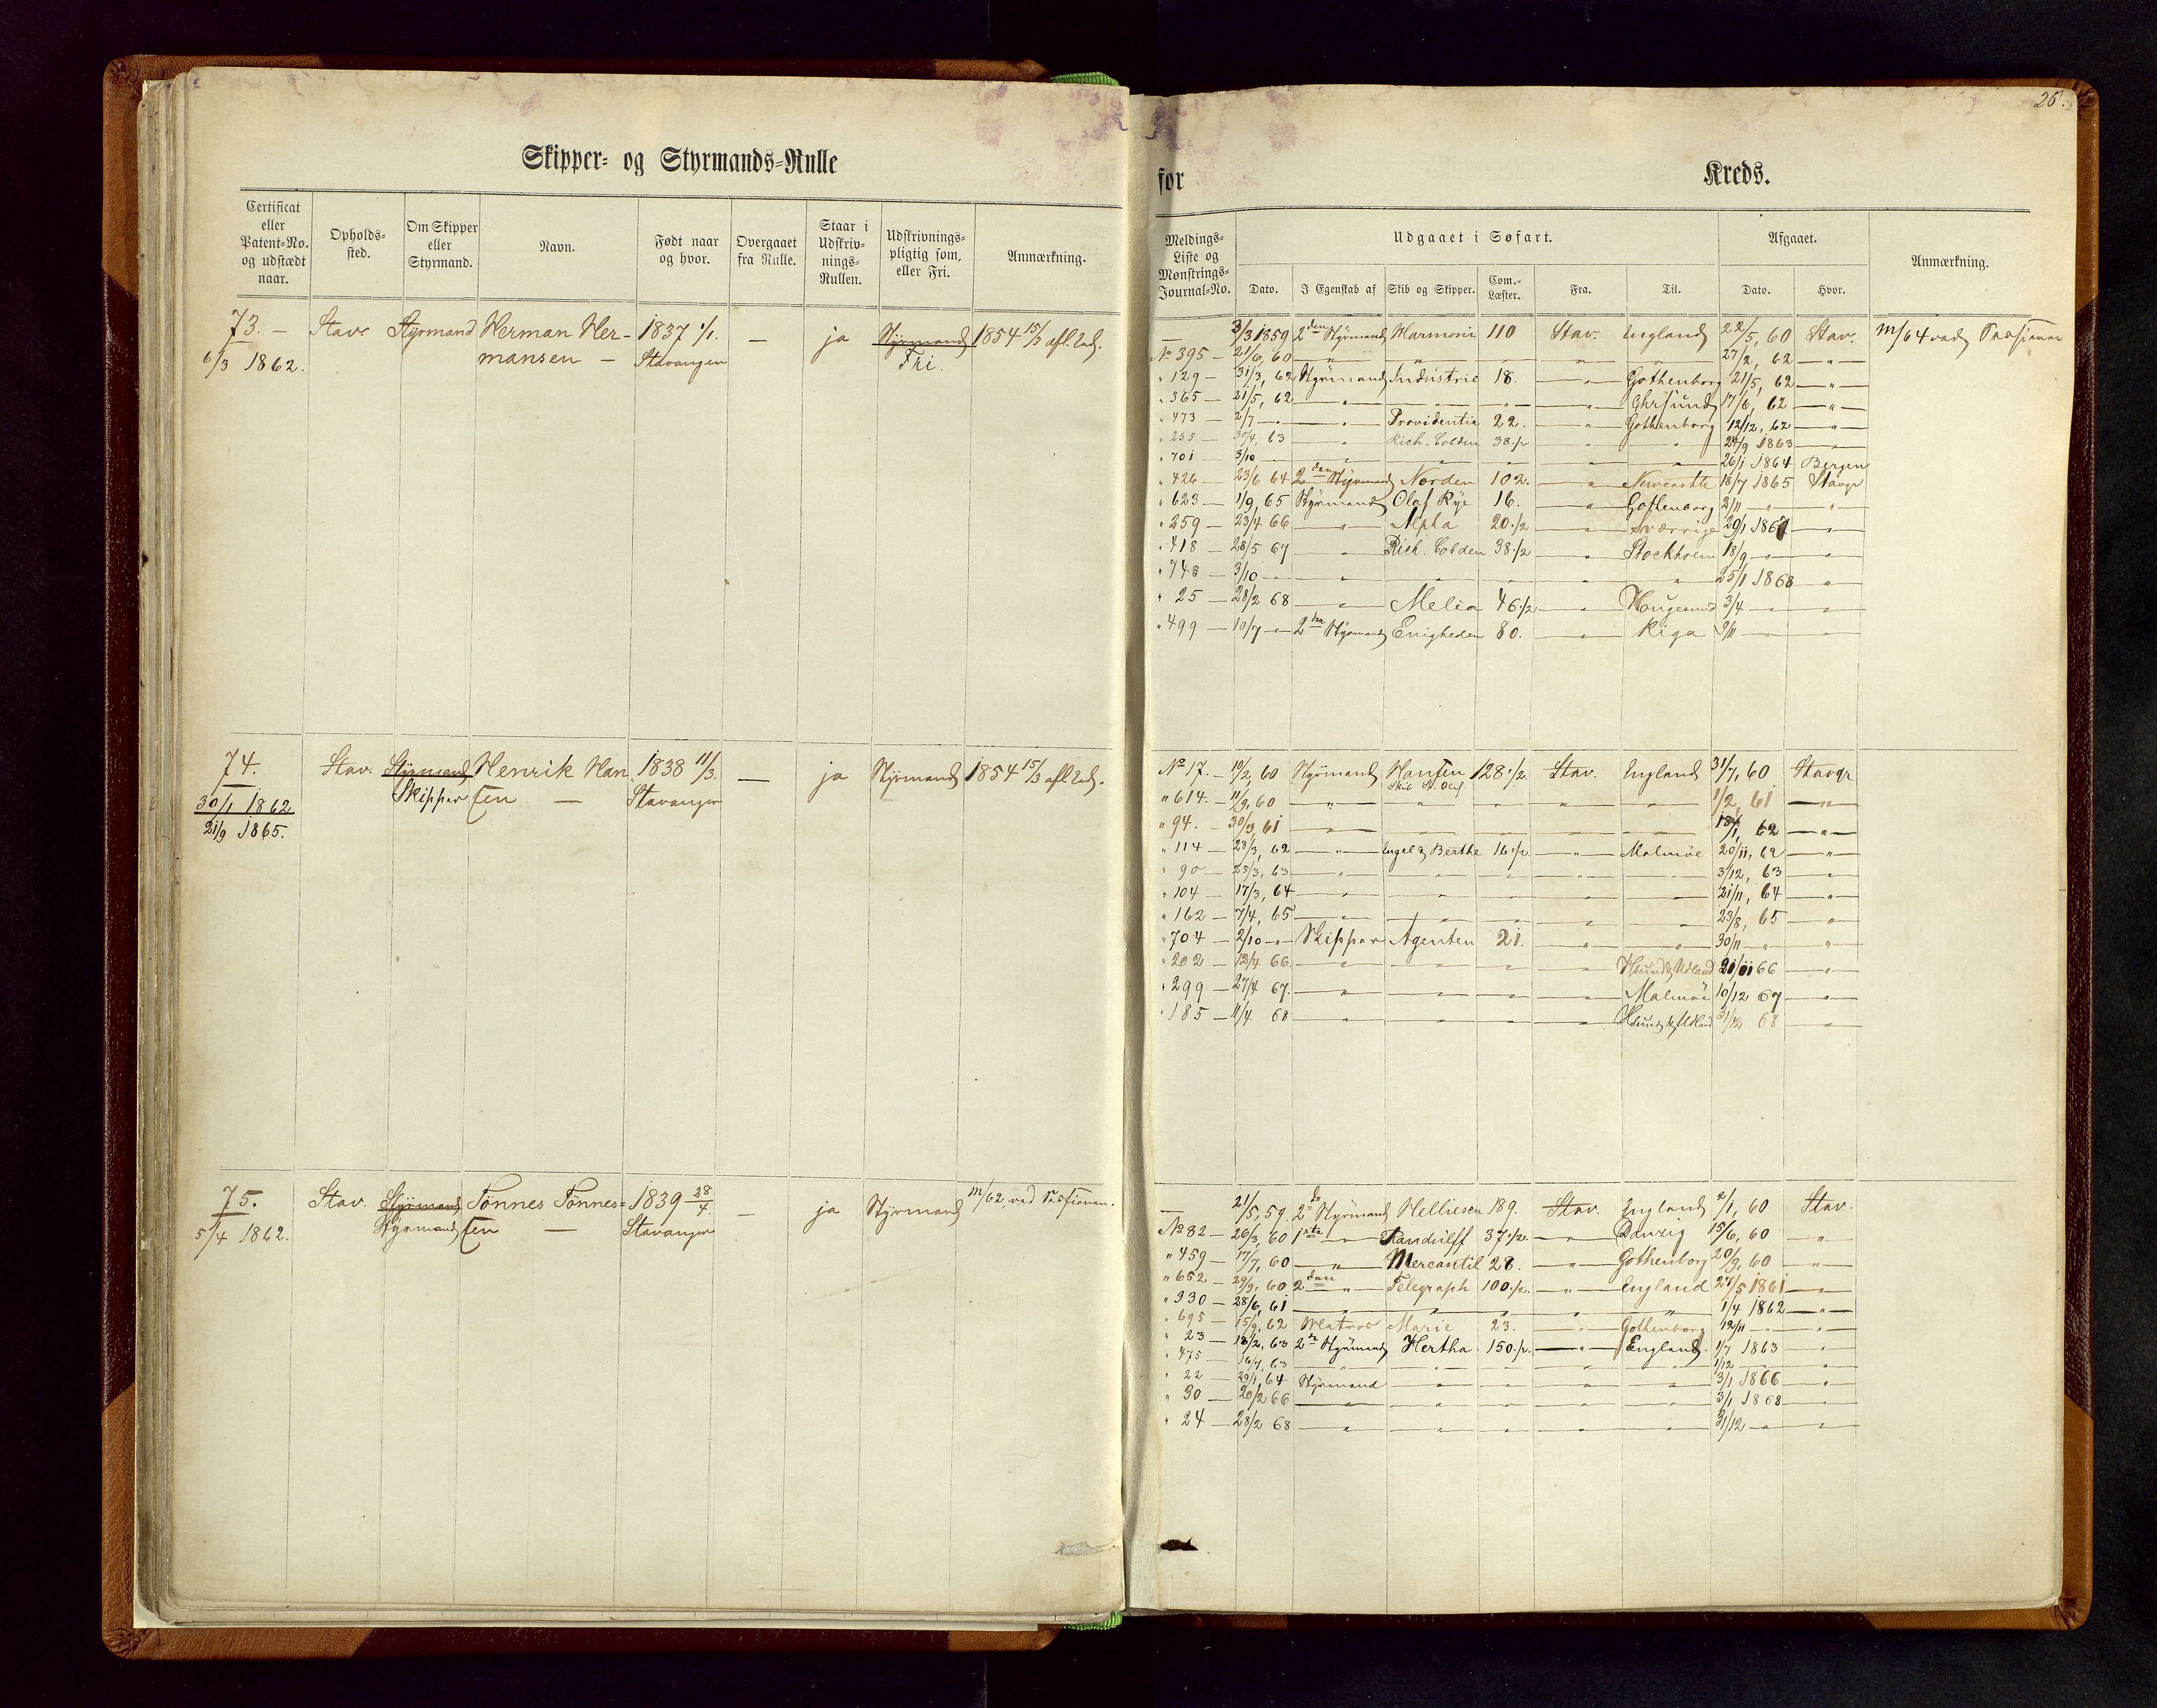 Skipper- og Styrmands-Rulle
Certificat eller Patent-No. og udstædt naar. | Opholds-sted. | Om Skipper eller Styrmand. | Navn. | Født naar og hvor. | Overgaaet fra Rulle. | Staar i Udskriv-nings-Rullen. | Udskrivnings-pligtig som, eller Fri. | Anmærkning.
73. — Stav. Styrmand Herman Her- 1837 1/1. — ja Styrmand 1854 15/3 afl. Ed.
6/3 1862. mansen — Stavanger Fri.
74. Stav. Styrmand Henrik Han- 1838 11/3. — ja Styrmand 1854 15/3 afl. Ed.
30/1 1862 Skipper sen — Stavanger
21/9 1865.
75. Stav. Styrmand Tönnes Tönnes= 1839 28/4 — ja Styrmand m/62, ved Sessionen.
5/4 1862. Styrmand sen — Stavanger
26.
for Kreds.
Meldings-Liste og Mønstrings-Journal-No. | Udgaaet i Søfart. | Afgaaet. | Anmærkning.
Dato. | I Egenskab af | Skib og Skipper. | Com.-Læster. | Fra. | Til. | Dato. | Hvor.
— 3/3 1859 2den Styrmand Harmonie 110 Stav. England 22/5, 60 Stav. m/64 ved Sessionen
No 395 — 21/6, 60 — " — " — " — " — " 27/2, 62 — " —
" 129 — 31/3, 62 Styrmand Industrie 18. — " — Gothenborg 21/5, 62 — " —
" 365 — 21/5, 62 — " — " — " — Ghrsund 17/6, 62 — " —
" 473 — 2/7 — " — " — Providentia 22. — " — Gothenborg 12/12, 62 — " —
" 255 — 30/4, 63 — " — Rich. Cobden 38 1/2 — " — " — 24/9 1863 — " —
" 701 — 3/10 — " — " — " — " — " — 26/1 1864 Bergen
" 426 — 23/6 64 2den Styrmand Norden 102. — " — Newcastle 18/7 1865 Stavgr
" 623 — 1/9, 65 Styrmand Olaf Rye 16. — " — Gothenborg 2/11 — " — " —
" 259 — 23/4 66 — " — Alpha 20 1/2 — " — Sverrige 29/1 1867 — " —
" 418 — 28/5 67 — " — Rich. Cobden 38 1/2 — " — Stockholm 18/9 — " — " —
" 748 — 3/10 — " — " — " — " — " 25/1 1868 — " —
" 25 — 28/2 68 — " — Melia 46 1/2 — " — Hougesund 3/4 — " — " —
" 499 — 10/7 — " — 2den Styrmand Enigheden 80. — " — Riga 9/11 — " — " —
No 17. — 10/2, 60 Styrmand Hansen 128 1/2. Stav. England 31/7, 60 Stavgr
Skib St. Oluf
" 614. — 11/9, 60 — " — " — " — " — " 1/2, 61 — " —
" 94. — 30/3, 61 — " — 18/1, 62 — " —
" 114 — 28/3, 62 — " — Engel & Berthe 16 1/2 — " — Malmöe 20/11, 62 — " —
" 90 — 25/3, 63 — " — " — " — " — " 3/12, 63 — " —
" 104 — 17/3, 64 — " — " — " — " — " 21/11, 64 — " —
" 162 — 7/4, 65 — " — " — " — " — " 23/8, 65 — " —
" 704 — 2/10 — " — Skipper Agenten 21. — " — " — 30/11 — " — " —
" 202 — 12/4 66. — " — " — " — " — Hsund & Udland 21/11 66 — " —
" 299 — 27/4 67. — " — " — " — " — Malmöe 10/12 67 — " —
" 185 — 11/4 68 — " — " — " — " — Hsund & Udland 31/12 68 — " —
21/5, 59. 2de Styrmand Helliesen 189. Stav. England 2/1, 60 Stav.
No 82 — 26/3, 60 1ste — " — Randulff 37 1/2. — " — Danzig 15/6, 60 — " —
" 459 — 17/7, 60 — " — Mercantil 28. — " — Gothenborg 20/9, 60 — " —
" 652 — 29/9, 60 2den — " — Telegraph 100 1/2. — " — England 27/5 1861 — " —
" 330 — 28/6, 61 — " — " — " — " — " 1/4 1862 — " —
" 695 — 15/9, 62 Matros Marie 23. — " — Gothenborg 12/11 — " — " —
" 23 — 18/2, 63 2de Styrmand Hertha 150 1/2. — " — England. 1/7 1863 — " —
" 475 — 16/7, 63 — " — " — " — " — " 1/12 — " —
" 22 — 29/1, 64 Styrmand — " — " — " — " 3/1 1866 — " —
" 30 — 20/2 66 — " — " — " — " — " 3/1 1868 — " —
" 24 — 28/2 68 — " — " — " — " — " 31/12 — " — " —